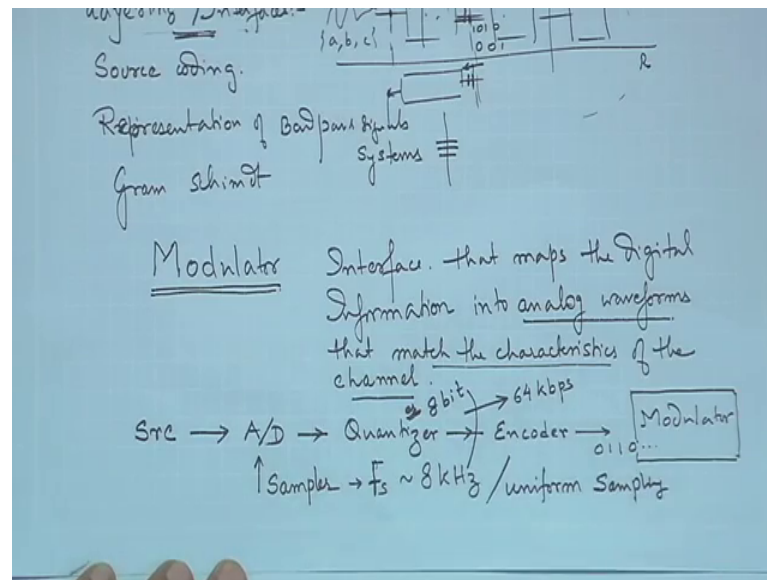 Layering / Interface.
{a, b, c}
1010
001
R
Source coding.
Representation of Bandpass signals
Systems
Gram Schimdt
Modulator Interface. that maps the Digital
Information into analog waveforms
that match the characteristics of the
channel.
8 bit → 64 kbps
Src → A/D → Quantizer → Encoder → Modulator
0110...
↑ Samples → fs ~ 8 kHz / uniform Sampling